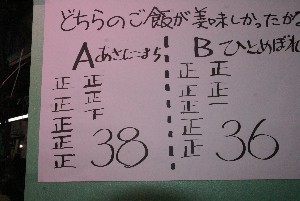 どちらのご飯が美味しかったか
A あきたこまち
正 正
正 正
正 下
正
正
38
B ひとめぼれ
正 正
正 正
正 一
正
正
36